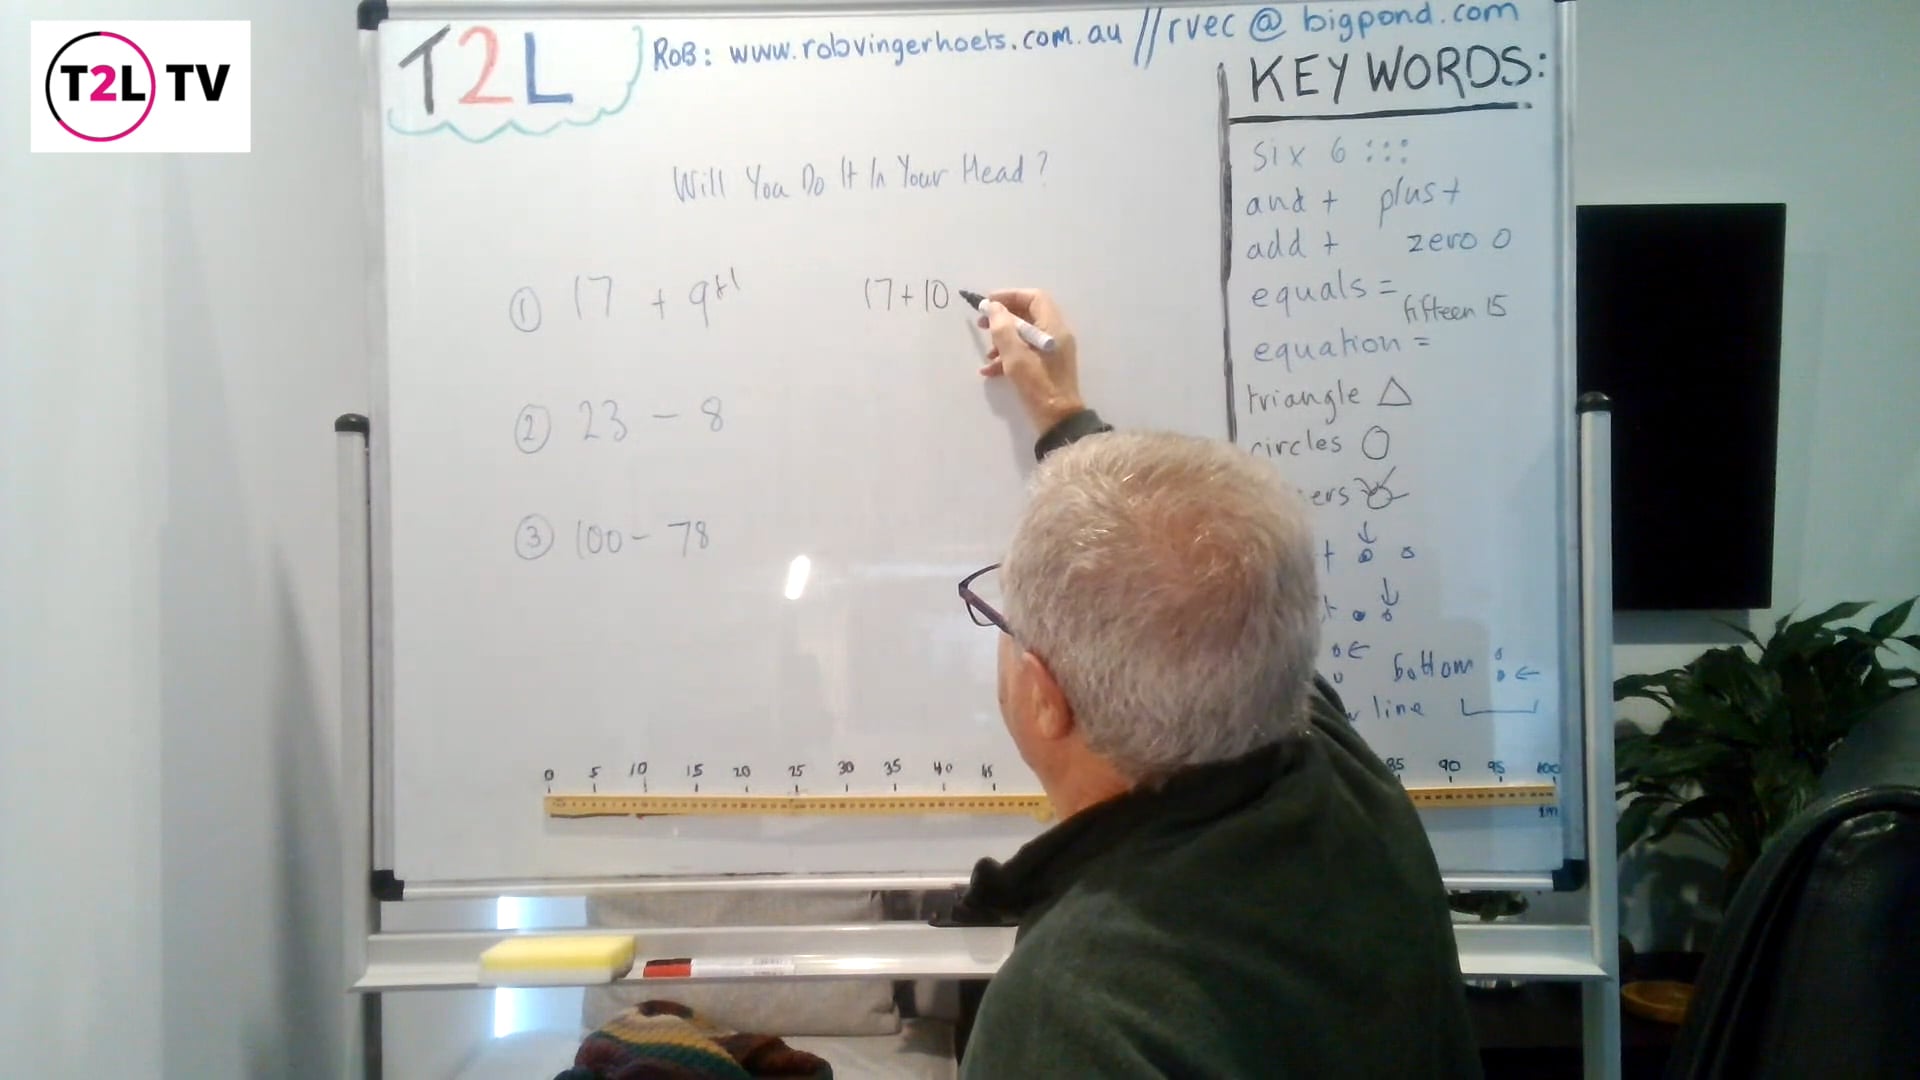 T2L TV
T2L
RoB: www.robvingerhoets.com.au // rvec @ bigpond.com
KEY WORDS:
Will You Do It In Your Head?
① 17 + 9+1
17+10
② 23 - 8
③ 100 - 78
six 6 :::
and + plus +
add + zero 0
equals =
fifteen 15
equation =
triangle △
circles ○
ers
bottom
line
0 5 10 15 20 25 30 35 40 45 85 90 95 100
1m